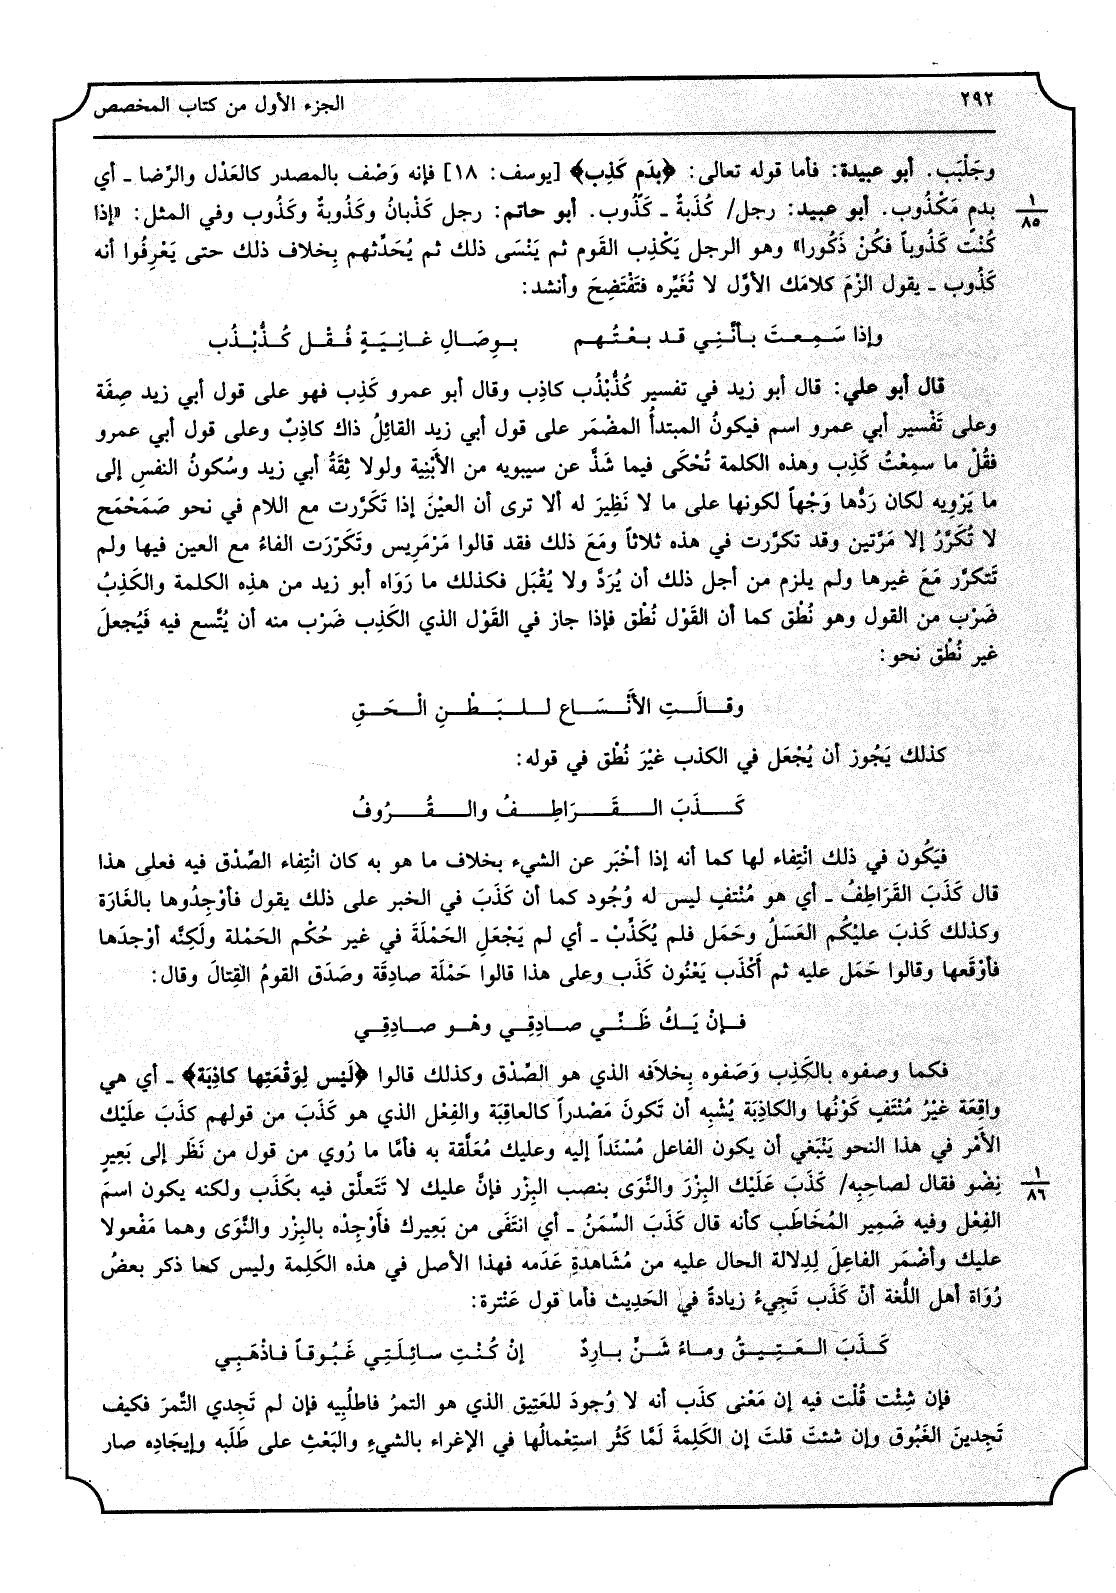 ٢٩٢
الجزء الأول من كتاب المخصص
وجَلْبَب. أبو عبيدة: فأما قوله تعالى: ﴿بدَم كَذِب﴾ [يوسف: ١٨] فإنه وَصْف بالمصدر كالعَدْل والرِّضا ـ أي
بدمٍ مَكْذُوب. أبو عبيد: رجل/ كُذَبةٌ ـ كَذُوب. أبو حاتم: رجل كَذْبانُ وكَذُوبةٌ وكَذُوب وفي المثل: «إذا
١
٨٥
كُنْت كَذُوباً فكُنْ ذَكُورا» وهو الرجل يَكْذِب القَوم ثم يَنْسَى ذلك ثم يُحَدِّثهم بِخلاف ذلك حتى يَعْرِفُوا أنه
كَذُوب ـ يقول الزَمْ كلامَك الأوَّل لا تُغَيِّره فتَفْتَضِحَ وأنشد:
وإذا سَـمِـعـتَ بـأنَّـنِـي قـد بـعْـتُـهـم بـوِصَـالِ غـانِـيَـةٍ فُـقْـل كُـذُّبْـذُب
قال أبو علي: قال أبو زيد في تفسير كُذُّبْذُب كاذِب وقال أبو عمرو كَذِب فهو على قول أبي زيد صِفَة
وعلى تَفْسير أبي عمرو اسم فيكونُ المبتدأُ المضْمَر على قول أبي زيد القائِلُ ذاك كاذِبٌ وعلى قول أبي عمرو
فقُلْ ما سمِعْتُ كَذِب وهذه الكلمة تُحْكَى فيما شذَّ عن سيبويه من الأبْنِية ولولا ثِقَةُ أبي زيد وسُكونُ النفس إلى
ما يَرْويه لكان رَدُّها وَجْهاً لكونها على ما لا نَظِيرَ له ألا ترى أن العيْنَ إذا تَكَرَّرت مع اللام في نحو صَمَحْمَح
لا تُكَرَّرُ إلا مَرَّتين وقد تكرَّرت في هذه ثلاثاً ومَعَ ذلك فقد قالوا مَرْمَرِيس وتَكَرّرَت الفاءُ مع العين فيها ولم
تَتكرَّر مَعَ غيرها ولم يلزم من أجل ذلك أن يُرَدَّ ولا يُقْبَل فكذلك ما رَوَاه أبو زيد من هذِه الكلمة والكَذِبُ
ضَرْب من القول وهو نُطْق كما أن القَوْل نُطْق فإذا جاز في القَوْل الذي الكَذِب ضَرْب منه أن يُتَّسع فيه فَيُجعلَ
غير نُطْق نحو:
وقـالَـتِ الأنْـسَـاع لـلـبَـطْـنِ الْـحَـقِ
كذلك يَجُوز أن يُجْعَل في الكذب غيْرَ نُطْق في قوله:
كَـذَبَ الـقَـرَاطِـفُ والـقُـرُوفُ
فيَكُون في ذلك انْتِفاء لها كما أنه إذا أخْبَر عن الشيء بخلاف ما هو به كان انْتِفاء الصِّدْق فيه فعلى هذا
قال كَذَبَ القَرَاطِفُ ـ أي هو مُنْتفٍ ليس له وُجُود كما أن كَذَبَ في الخبر على ذلك يقول فأوْجِدُوها بالغَارَة
وكذلك كَذبَ عليْكُم العَسَلُ وحَمَل فلم يُكَذِّبْ ـ أي لم يَجْعَلِ الحَمْلَةَ في غير حُكْم الحَمْلة ولَكِنَّه أوْجدَها
فأوْقَعها وقالوا حَمَل عليه ثم أَكْذَب يَعْنُون كَذَب وعلى هذا قالوا حَمْلَة صادِقة وصَدَق القومُ القِتالَ وقال:
فـإنْ يَـكُ ظَـنِّـي صـادِقِـي وهْـو صـادِقِـي
فكما وصفوه بالكَذِب وَصَفوه بِخلاَفه الذي هو الصِّدْق وكذلك قالوا ﴿لَيْس لِوَقْعَتِها كاذِبَة﴾ ـ أي هي
واقِعَة غيْرُ مُنْتَفٍ كَوْنُها والكاذِبَة يُشْبِه أن تَكونَ مَصْدراً كالعاقِبَة والفِعْل الذي هو كَذَبَ من قولهم كذَبَ علَيْك
الأمْر في هذا النحو يَنْبَغي أن يكون الفاعل مُسْنَداً إليه وعليك مُعَلَّقة به فأمَّا ما رُوي من قول من نَظَر إلى بَعِيرٍ
نِضْو فقال لصاحِبِه/ كَذَبَ عَلَيْك البِزْرَ والنَّوَى بنصب البِزْر فإنَّ عليك لا تَتَعلَّق فيه بكَذَب ولكنه يكون اسمَ
١
٨٦
الفِعْل وفيه ضَمِير المُخَاطَب كأنه قال كَذَبَ السِّمَنُ ـ أي انتَفَى من بَعِيرك فأوْجِدْه بالبِزْر والنَّوَى وهما مَفْعولا
عليك وأضْمَر الفاعِلَ لِدِلالة الحال عليه من مُشَاهدةِ عَدَمه فهذا الأصل في هذه الكَلِمة وليس كما ذكر بعضُ
رُوَاة أهل اللُّغة أنّ كَذَب تَجِيءُ زيادةً في الحَدِيث فأما قول عَنْترة:
كَـذَبَ الـعَـتِـيـقُ ومـاءُ شَـنٍّ بـارِدٌ إنْ كُـنْـتِ سـائِـلَـتِـي غَـبُـوقـاً فـاذْهَـبِـي
فإن شِئْت قُلْت فيه إن مَعْنى كذَب أنه لا وُجودَ للعَتِيق الذي هو التمرُ فاطلُبِيه فإن لم تَجِدي التَّمرَ فكيف
تَجِدينَ الغَبُوق وإن شئتَ قلتَ إن الكَلِمةَ لَمَّا كَثُر استِعْمالُها في الإغراء بالشيءِ والبَعْثِ على طَلَبه وإيجَادِه صار